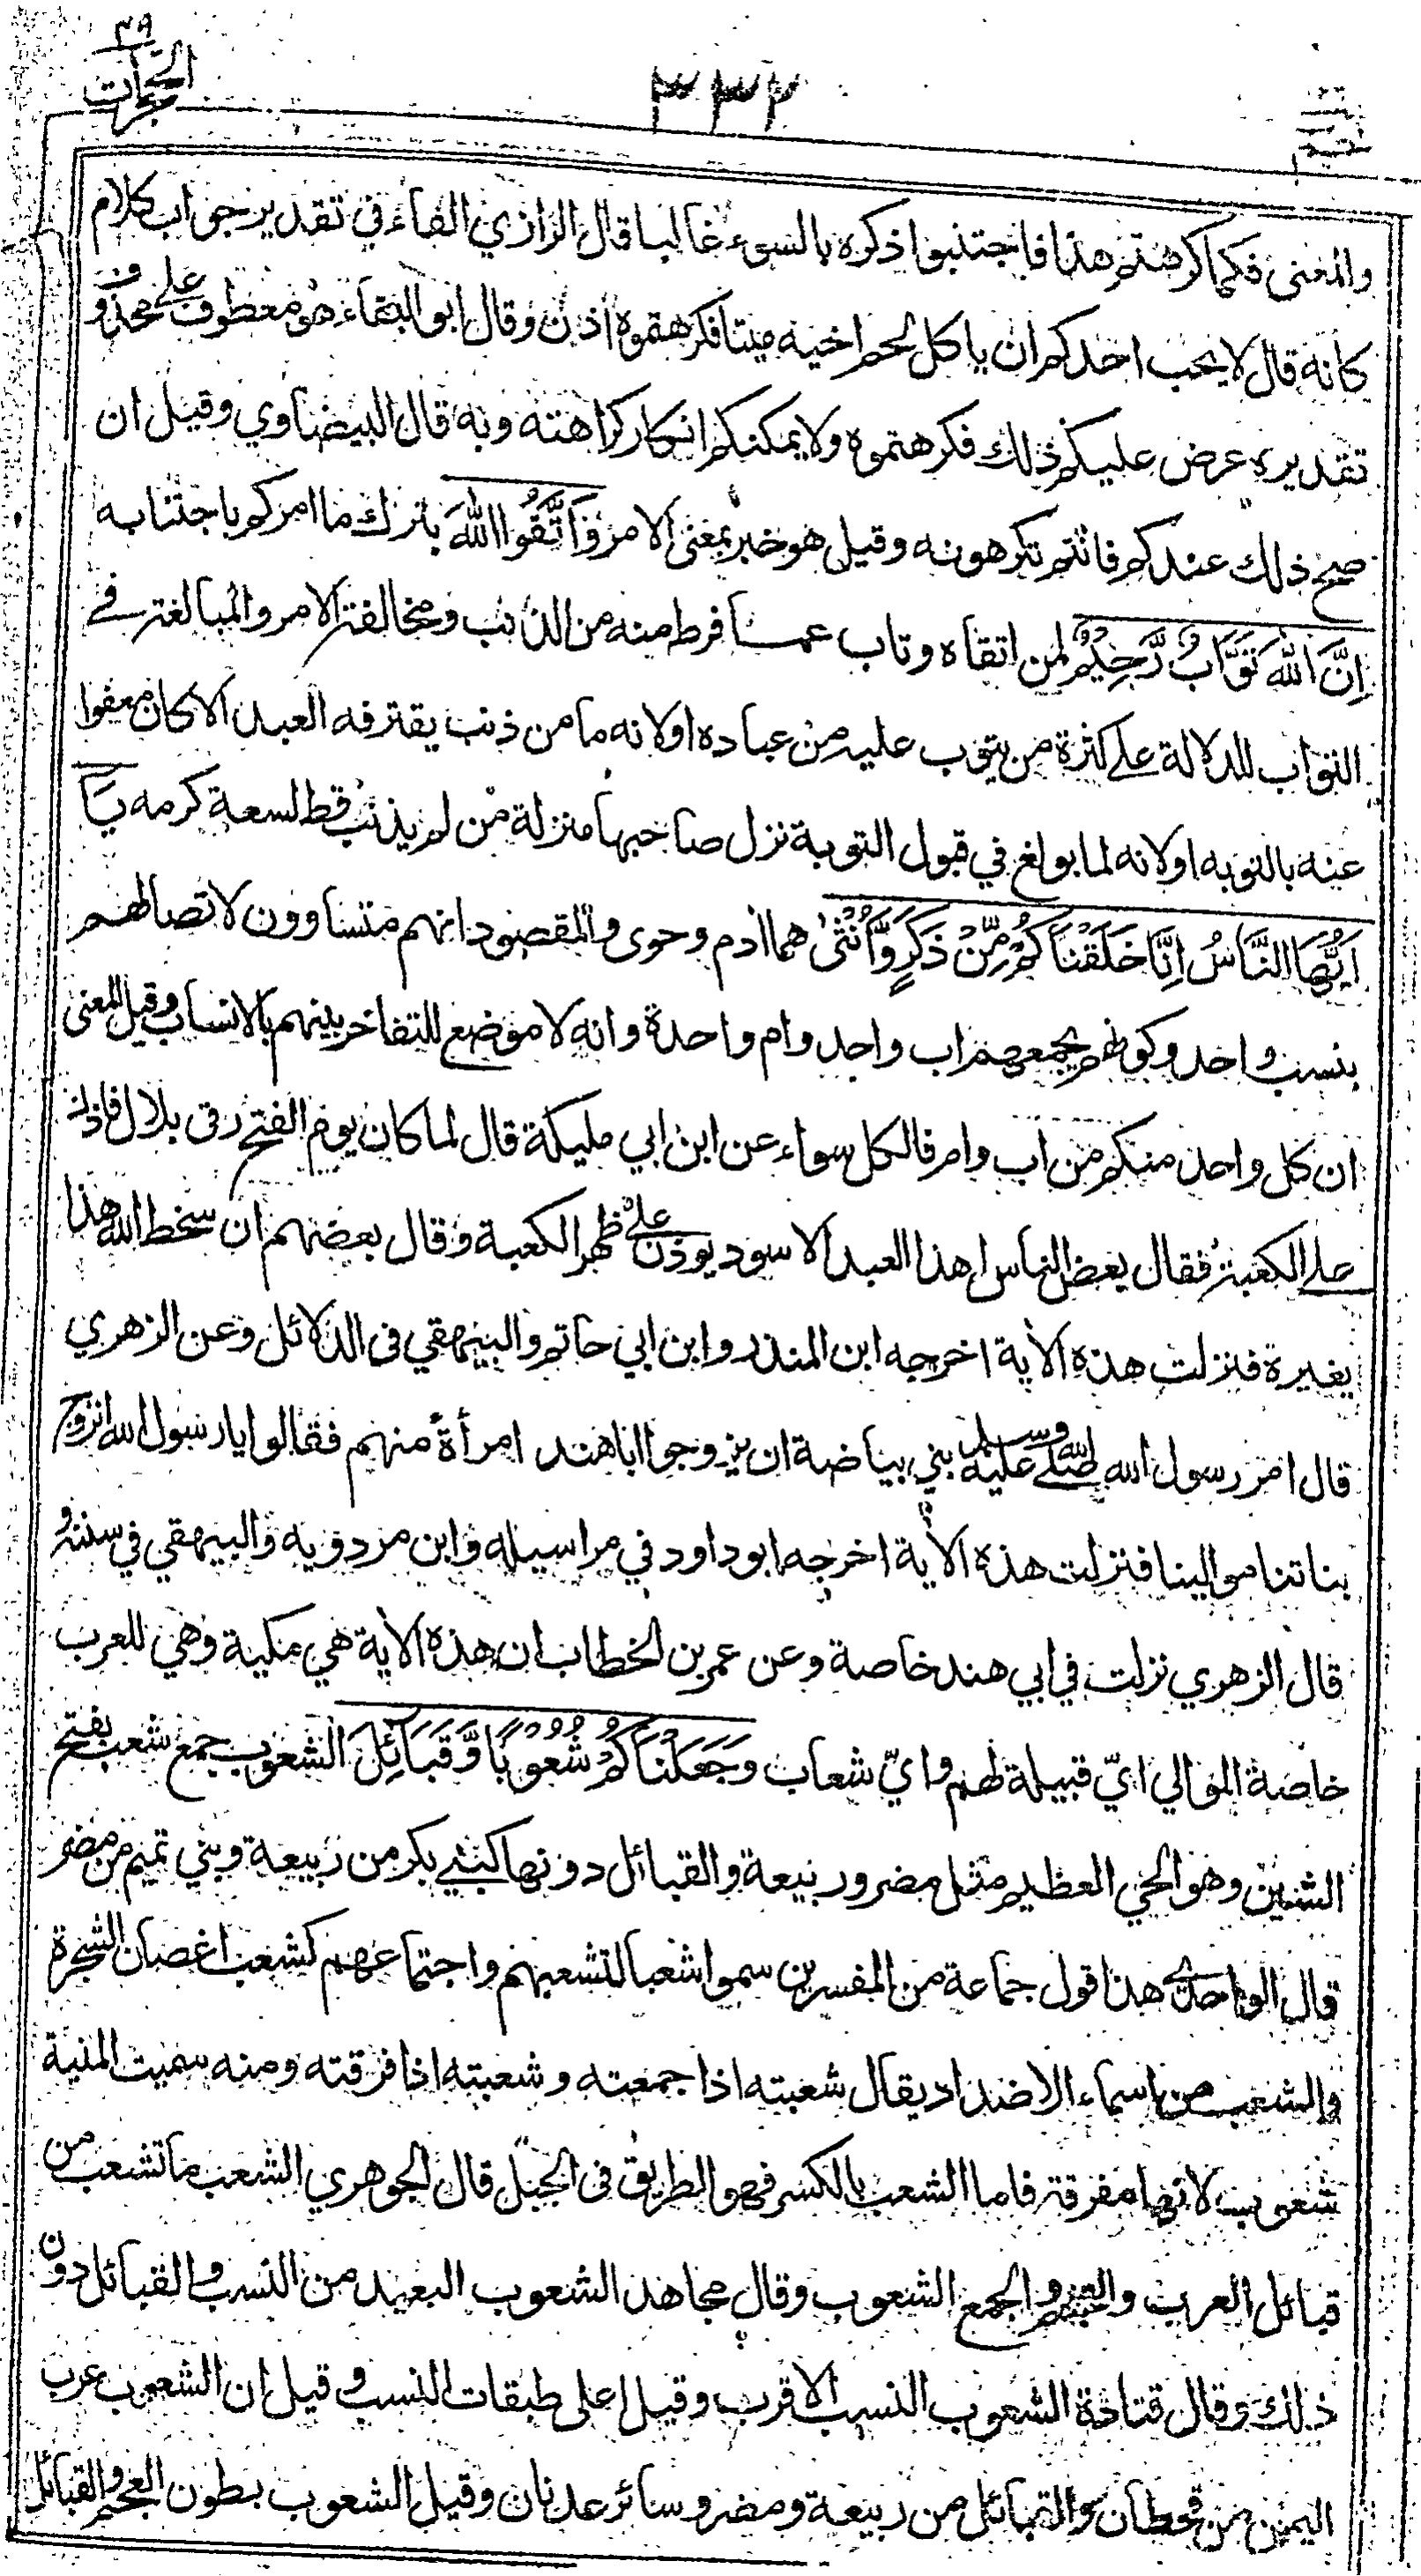 ٤٩
الحجرات
٣٣٢
والمعنى فكما كرهتم هذا فاجتنبوا ذكره بالسوء غالبا قال الرازي الفاء في تقدير جواب كلام
كانه قال لا يحب احدكم ان ياكل لحم اخيه ميتا فكرهتموه اذن وقال ابو البقاء هو معطوف على محذوف
تقديره عرض عليكم ذلك فكرهتموه ولا يمكنكم انكار كراهته وبه قال البيضاوي وقيل ان
صح ذلك عندكم فانتم تكرهونه وقيل هو خبر بمعنى الامر وَاتَّقُوا اللهَ بترك ما امركم باجتنابه
اِنَّ اللهَ تَوَّابٌ رَّحِيْمٌ لمن اتقاه وتاب عما فرط منه من الذنب ومخالفة الامر والمبالغة في
التواب للدلالة على كثرة من يتوب عليه من عباده او لانه ما من ذنب يقترفه العبد الا كان معفوا
عنه بالتوبه او لانه لما بولغ في قبول التوبة نزل صاحبها منزلة من لم يذنب قط لسعة كرمه يَا
اَيُّهَا النَّاسُ اِنَّا خَلَقْنَاكُمْ مِّنْ ذَكَرٍ وَّاُنْثٰى هما ادم وحوى والمقصود انهم متساوون لاتصالهم
بنسب واحد وكونهم يجمعهم اب واحد وام واحدة وانه لا موضع للتفاخر بينهم بالانساب وقيل المعنى
ان كل واحد منكم من اب وام فالكل سواء عن ابن ابي مليكة قال لما كان يوم الفتح رقى بلال فاذن
على الكعبة فقال بعض الناس اهذا العبد الاسود يوذن على ظهر الكعبة وقال بعضهم ان سخط الله هذا
يغيره فنزلت هذه الأية اخرجه ابن المنذر وابن ابي حاتم والبيهقي في الدلائل وعن الزهري
قال امر رسول الله صلى الله عليه وسلم بني بياضة ان يزوجوا ابا هند امرأة منهم فقالوا يا رسول الله انزوج
بناتنا موالينا فنزلت هذه الأية اخرجه ابو داود في مراسيله وابن مردويه والبيهقي في سننه و
قال الزهري نزلت في ابي هند خاصة وعن عمر بن الخطاب ان هذه الأية هي مكية وهي للعرب
خاصة الموالي ايّ قبيلة لهم وايّ شعاب وَجَعَلْنَاكُمْ شُعُوْبًا وَّقَبَآئِلَ الشعوب جمع شعب بفتح
الشين وهو الحي العظيم مثل مضر وربيعة والقبائل دونها كبني بكر من ربيعة وبني تميم من مضر
قال الواحدي هذا قول جماعة من المفسرين سموا شعبا لتشعبهم واجتماعهم كشعب اغصان الشجرة
والشعب من اسماء الاضداد يقال شعبته اذا جمعته وشعبته اذا فرقته ومنه سميت المنية
شعوب لانها مفرقة فاما الشعب بالكسر فهو الطريق في الجبل قال الجوهري الشعب ما تشعب من
قبائل العرب والعجم والجمع الشعوب وقال مجاهد الشعوب البعيد من النسب والقبائل دون
ذلك وقال قتادة الشعوب النسب الاقرب وقيل اعلى طبقات النسب وقيل ان الشعوب عرب
اليمن من قحطان والقبائل من ربيعة ومضر وسائر عدنان وقيل الشعوب بطون العجم والقبائل